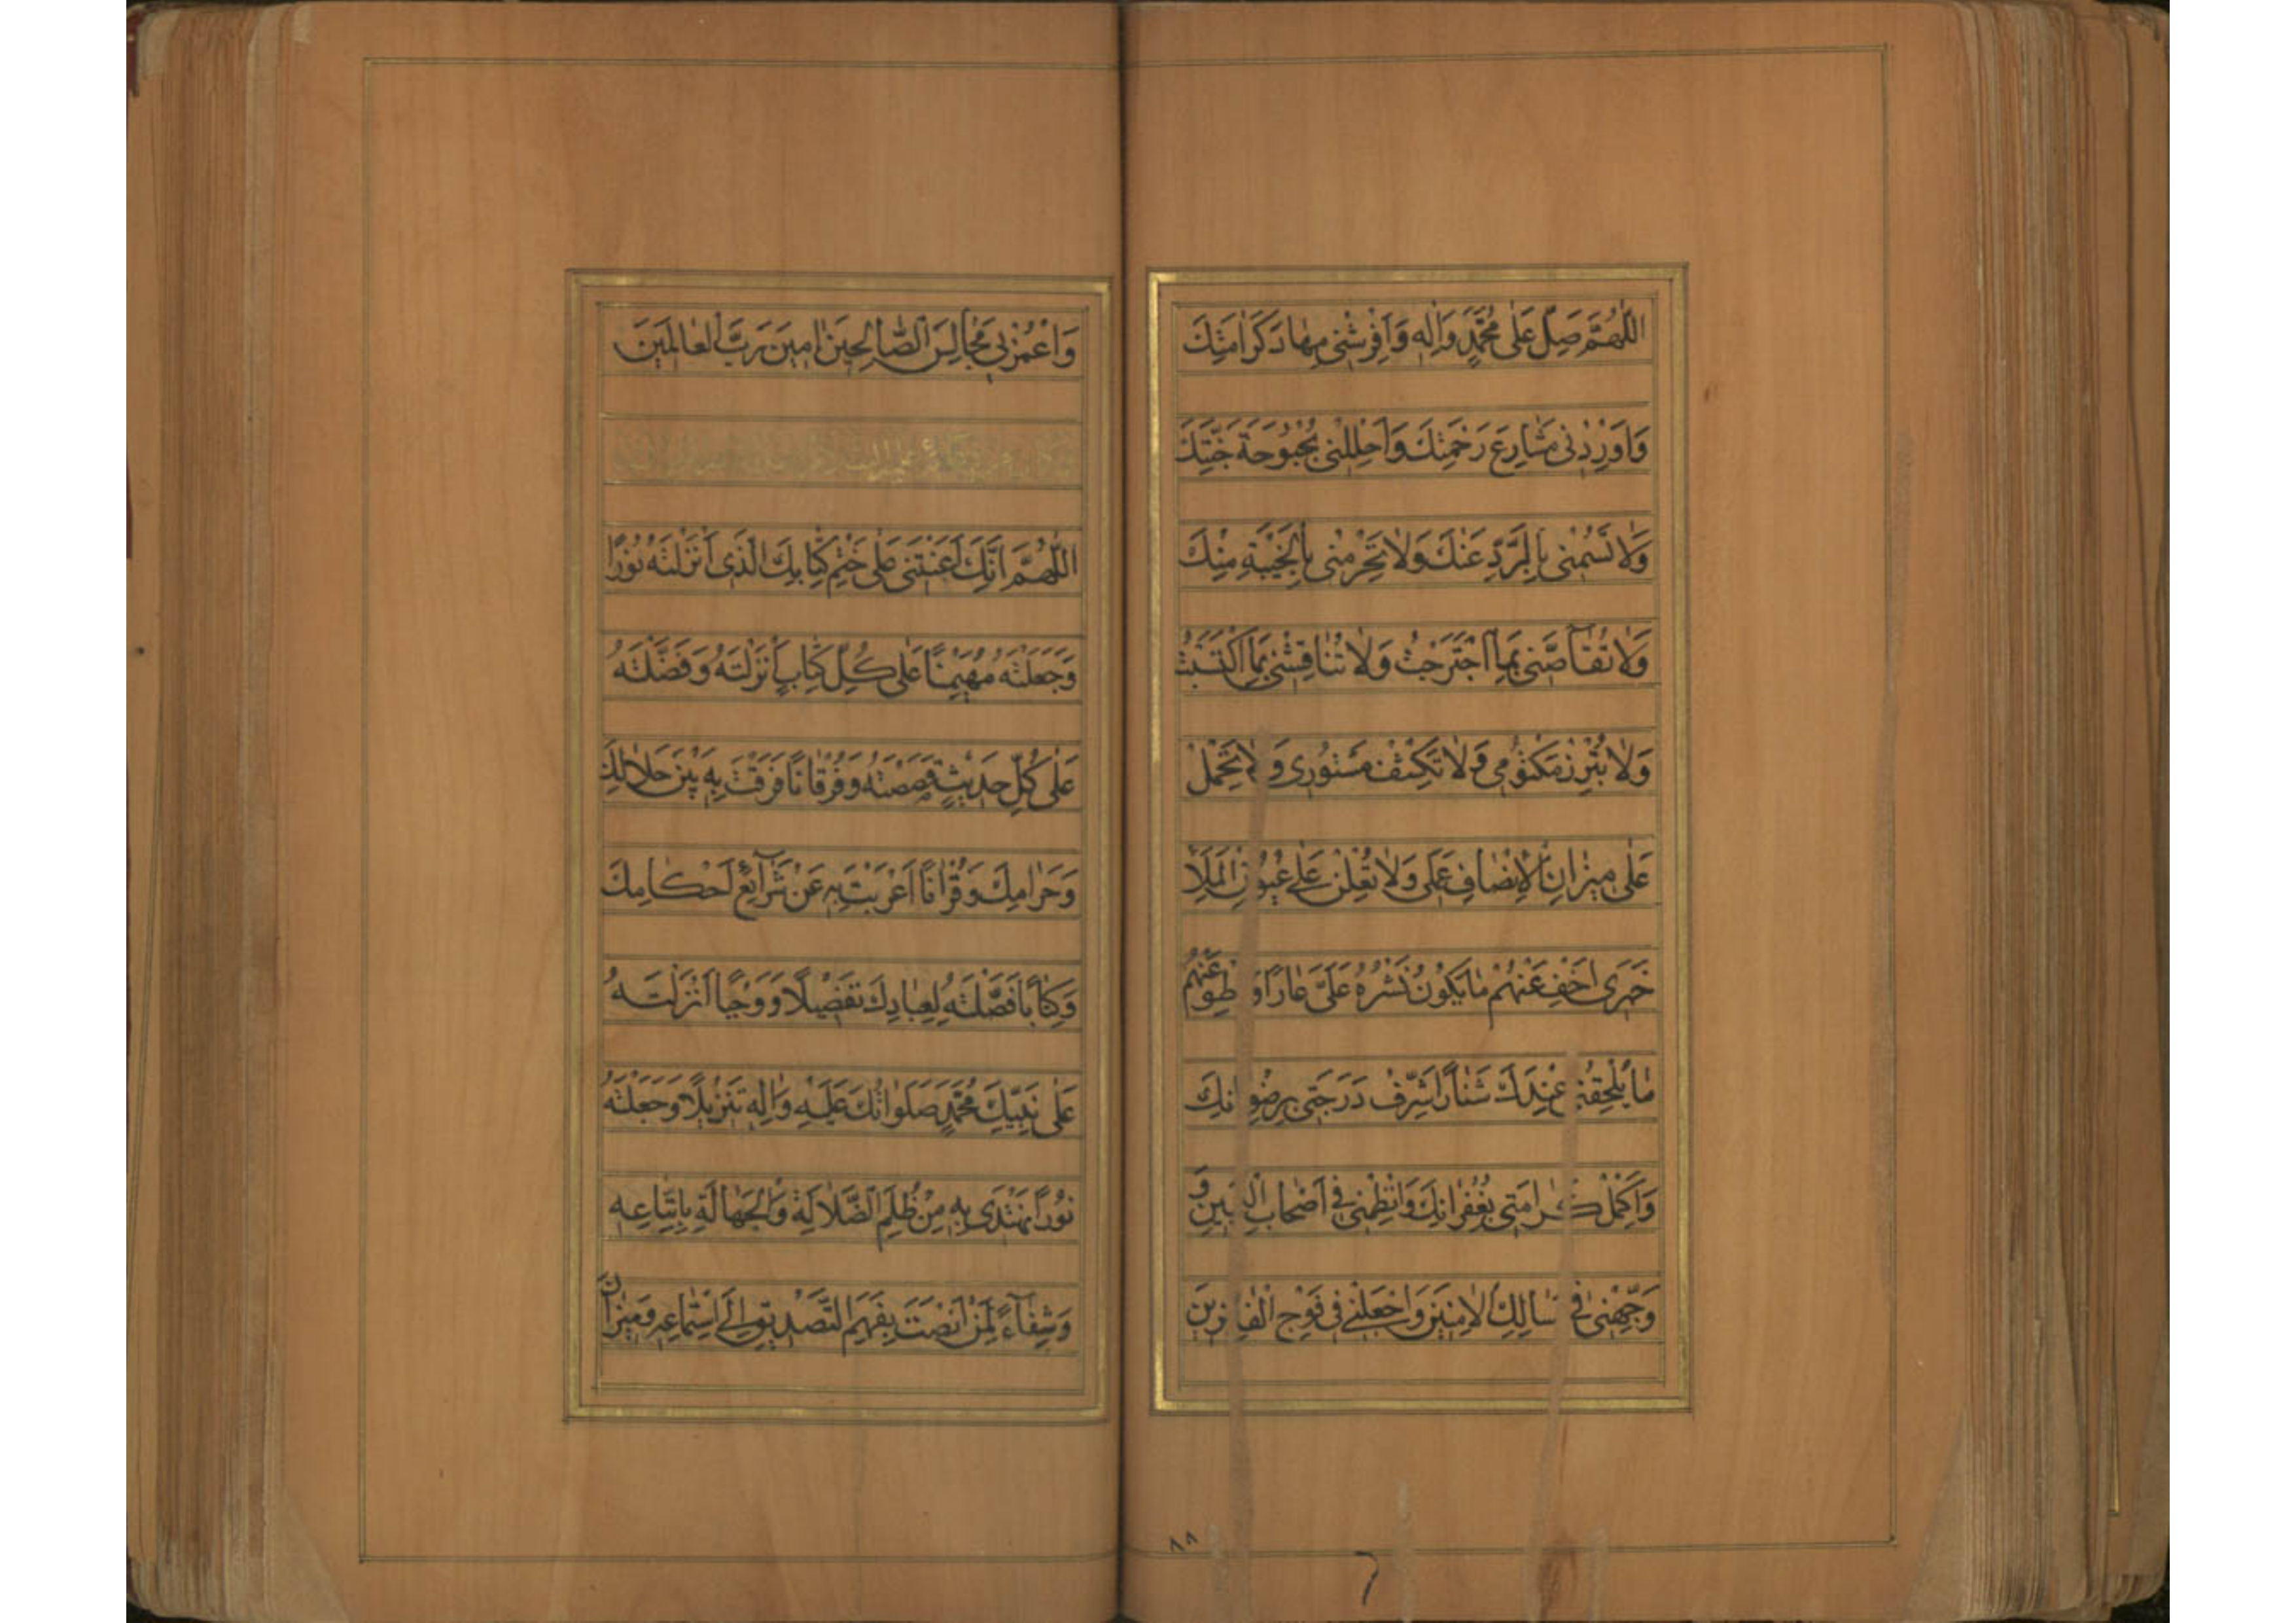 اَللّٰهُمَّ صَلِّ عَلٰى مُحَمَّدٍ وَاٰلِهِ وَاَفْرِشْنى مِهٰادَ كَرٰامَتِكَ
وَاَوْرِدْنى مَشٰارِعَ رَحْمَتِكَ وَاَحْلِلْنى بُحْبُوحَةَ جَنَّتِكَ
وَلٰا تَسُمْنى بِالرَّدِّ عَنْكَ وَلٰا تَحْرِمْنى بِالْخَيْبَةِ مِنْكَ
وَلٰا تُقٰآصَّنى بِمَا اجْتَرَحْتُ وَلٰا تُنٰاقِشْنى بِمَا اكْتَسَبْتُ
وَلٰا تُبْرِزْ مَكْتُومى وَلٰا تَكْشِفْ مَسْتُورى وَلٰا تَحْمِلْ
عَلٰى ميزٰانِ الْاِنْصٰافِ عَمَلى وَلٰا تُعْلِنْ عَلٰى عُيُونِ الْمَلَاِ
خَبَرى اَخْفِ عَنْهُمْ مٰا يَكُونُ نَشْرُهُ عَلَىَّ عٰارًا وَ طْوِ عَنْهُمْ
مٰا يُلْحِقُنى عِنْدَكَ شَنٰارًا شَرِّفْ دَرَجَتى بِرِضْوٰانِكَ
وَاَكْمِلْ كَرٰامَتى بِغُفْرٰانِكَ وَانْظِمْنى فى اَصْحٰابِ الْ بَمينِ وَ
وَجِّهْنى فى مَسٰالِكِ الْاٰمِنينَ وَاجْعَلْنى فى فَوْجِ الْفٰائِزينَ
٨٨
وَاعْمُرْ بى مَجٰالِسَ الصّٰالِحينَ اٰمينَ رَبَّ الْعٰالَمينَ
اَللّٰهُمَّ اِنَّكَ اَعَنْتَنى عَلٰى خَتْمِ كِتٰابِكَ الَّذى اَنْزَلْتَهُ نُورًا
وَجَعَلْتَهُ مُهَيْمِنًا عَلٰى كُلِّ كِتٰابٍ اَنْزَلْتَهُ وَفَضَّلْتَهُ
عَلٰى كُلِّ حَديثٍ قَصَصْتَهُ وَفُرْقٰانًا فَرَقْتَ بِهِ بَيْنَ حَلٰالِكَ
وَحَرٰامِكَ وَقُرْاٰنًا اَعْرَبْتَ بِهِ عَنْ شَرٰآئِعِ اَحْكٰامِكَ
وَكِتٰابًا فَصَّلْتَهُ لِعِبٰادِكَ تَفْصيلًا وَوَحْيًا اَنْزَلْتَهُ
عَلٰى نَبِيِّكَ مُحَمَّدٍ صَلَوٰاتُكَ عَلَيْهِ وَاٰلِهِ تَنْزيلًا وَجَعَلْتَهُ
نُورًا نَهْتَدى بِهِ مِنْ ظُلَمِ الضَّلٰالَةِ وَالْجَهٰالَةِ بِاتِّبٰاعِهِ
وَشِفٰآءً لِمَنْ اَنْصَتَ بِفَهَمِ التَّصْديقِ اِلَى اسْتِمٰاعِهِ وَميزٰانَ